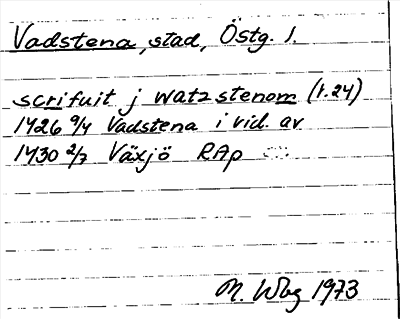 Vadstena, stad, Östg. l.
scrifuit j watzstenom (r.24)
1426 9/4 Vadstena i vid. av
1430 2/7 Växjö RAp
M. Wbg 1973